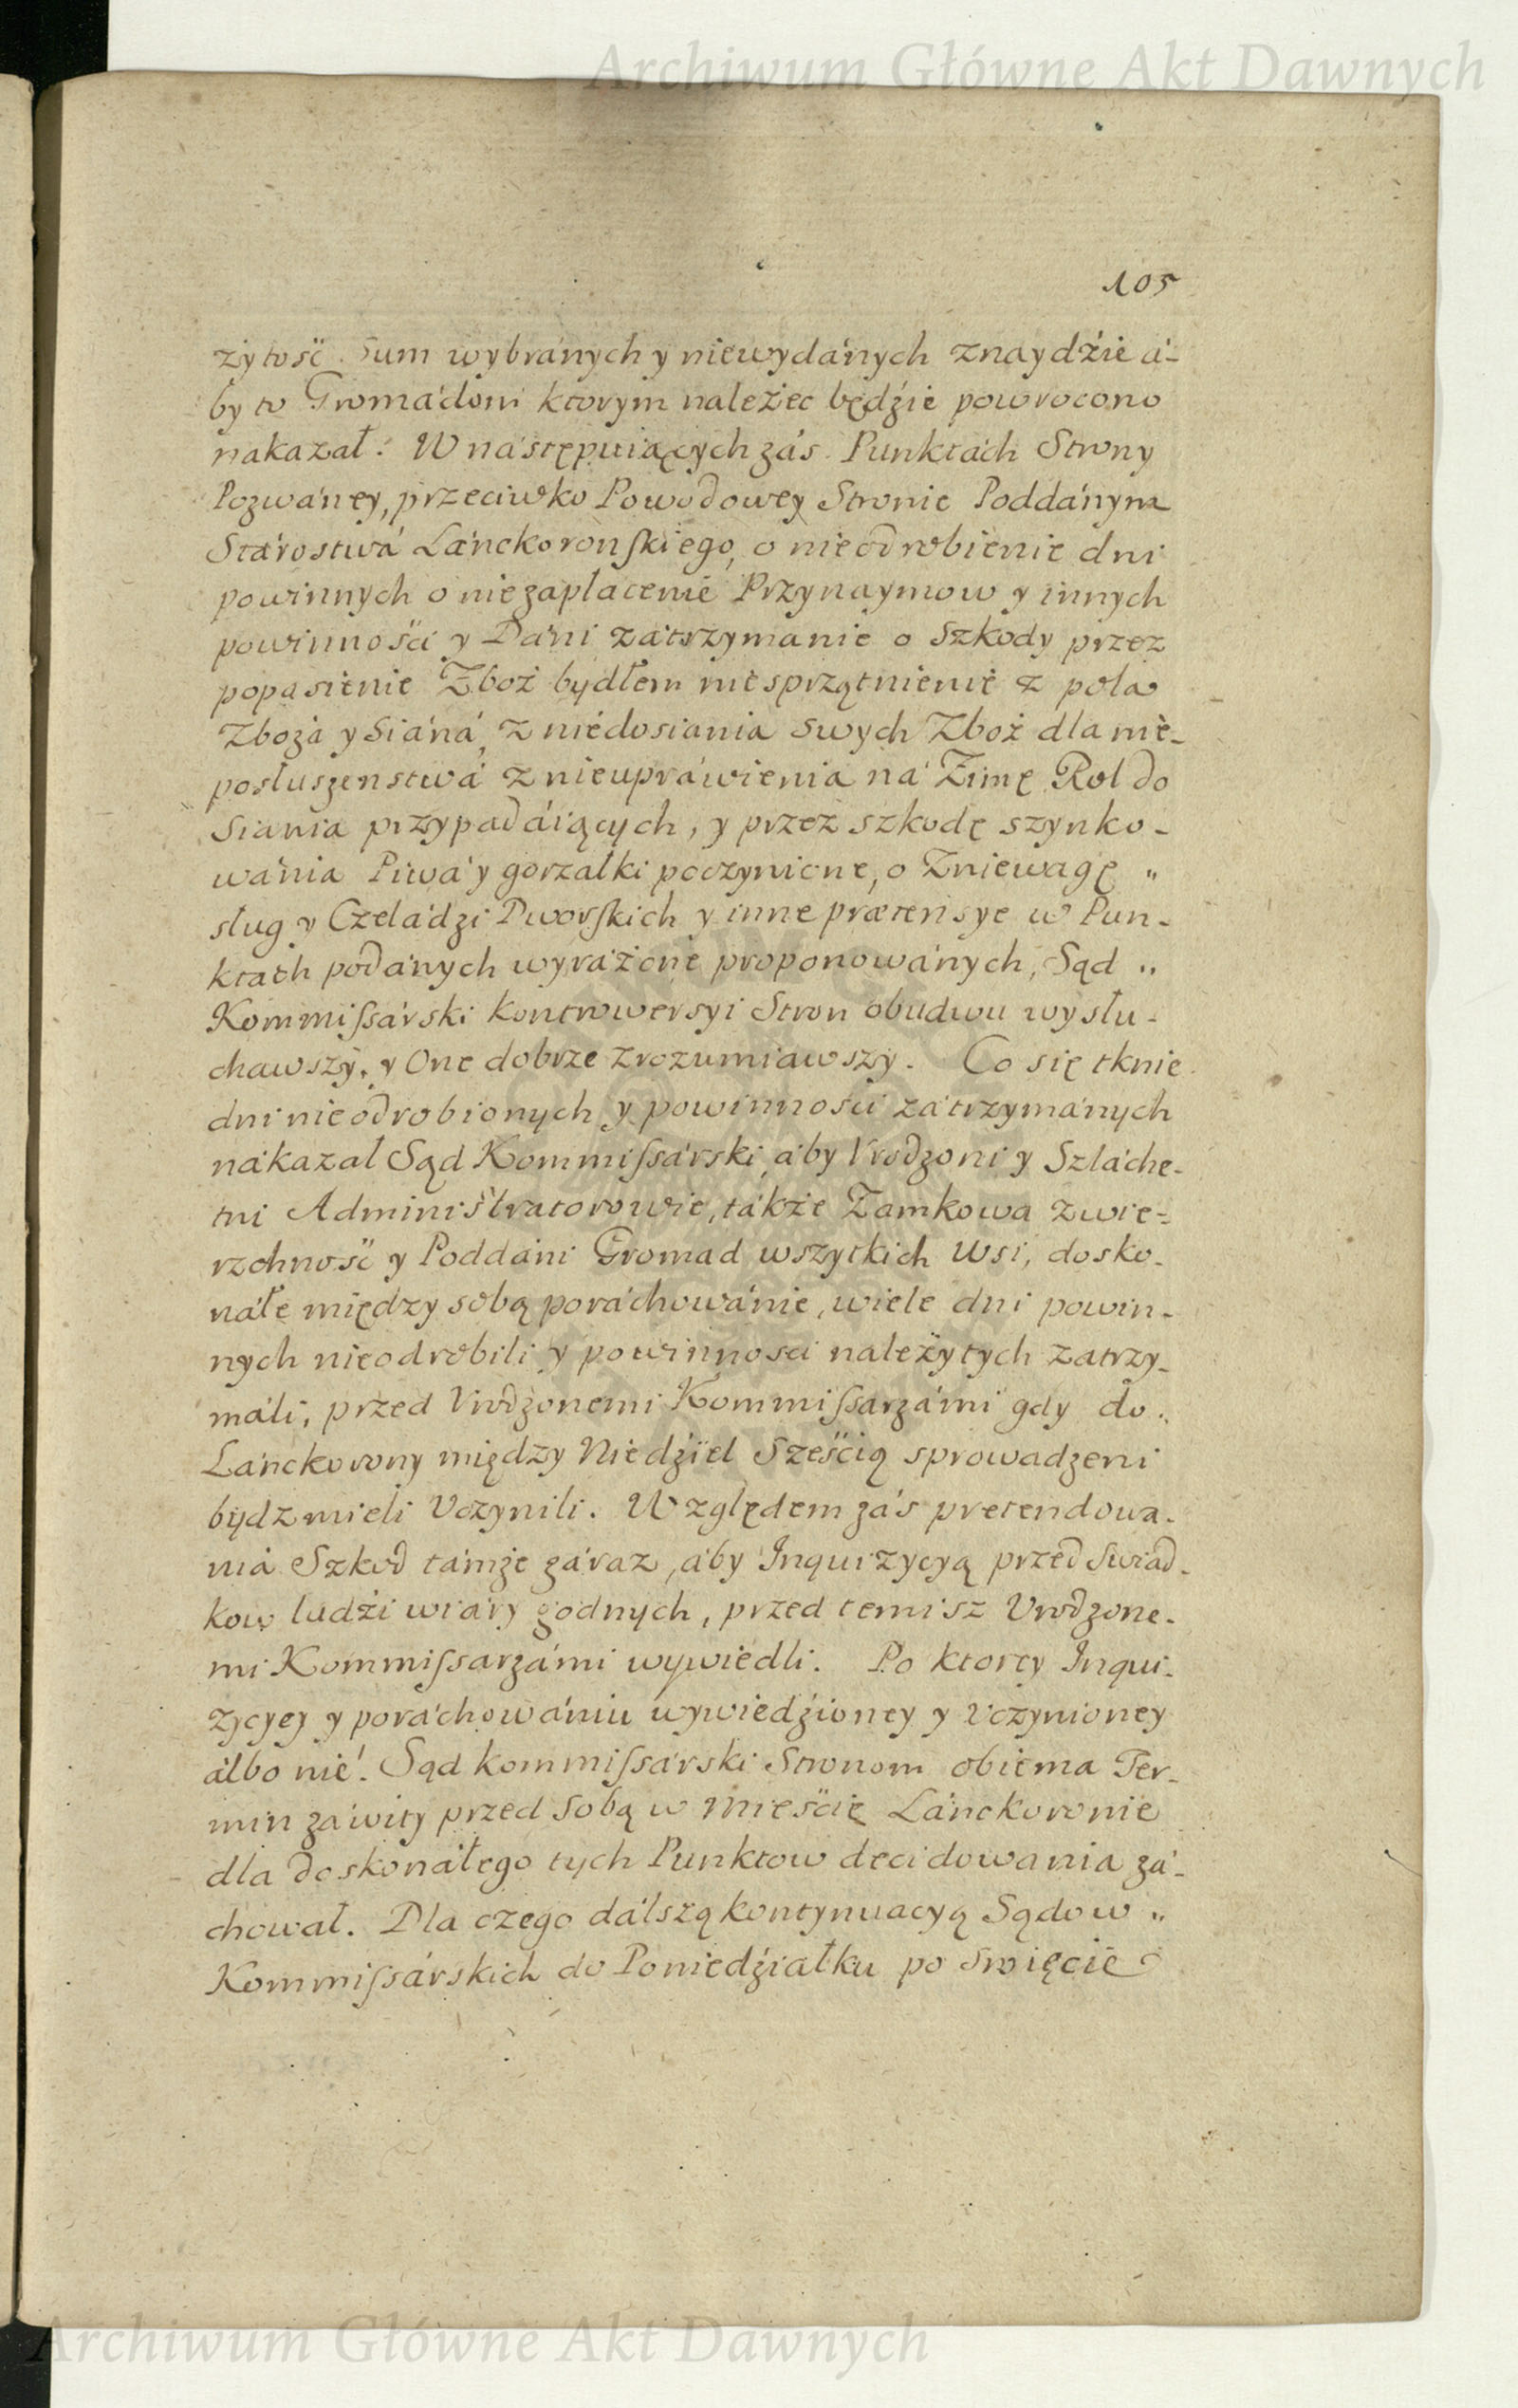 Archiwum Główne Akt Dawnych
105
żytość Sum wybránych y niewydánych znaydźie á-
by to Gromádom ktorym należec będźie powrocono
nakazał: W nástępuiących zás Punktách Strony
Pozwáney, przeciwko Powodowey Stronie Poddánym
Stárostwá Lánckoronſkiego, o nieodrobienie dni
powinnych o niezapłacenie Przynaymow y innych
powinnośći y Dáni zátrzymanie o Szkody przez
popasienie Zboż bydłem niesprzątnienie z pola
Zboża y Siáná, z niedosiania swych Zboż dla nie-
posłuszenstwá z nieupráwienia ná Zimę Rol do
Siania przypadáiących, y przez szkodę szynko-
wánia Piwá y gorzałki poczynione, o Zniewagę „
sług y Czeládzi Dworſkich y inne prætensye w Pun-
ktach podánych wyráżone proponowánych, Sąd „
Kommiſsárski kontrowersyi Stron obudwu wysłu-
chawszy, y One dobrze zrozumiawszy. Co się tknie
dni nieodrobionych y powinnośći zátrzymánych
nákazał Sąd Kommiſsárski, áby Vrodzoni y Szláche-
tni Administratorowie, tákże Zamkowa zwie-
rzchność y Poddáni Gromad wszytkich Wsi, dosko-
náłe między sobą poráchowánie, wiele dni powin-
nych nieodrobili y powinnosci należytych zatrzy-
máli, przed Vrodzonemi Kommiſsarzámi gdy do „
Lánckorony między Niedźiel Sześćią sprowadzeni
bydz mieli Vczynili. Względem zás pretendowa-
nia Szkod támże záraz, áby Inquizycyą przed Swiad-
kow ludźi wiáry godnych, przed temisz Vrodzone-
mi Kommiſsarzámi wywiedli. Po ktorey Inqui-
zycyey y poráchowániu wywiedźioney y Vczynioney
álbo nie! Sąd kommiſsárski Stronom obiema Ter-
min záwity przed Sobą w Mieśćie Lánckoronie
dla doskonáłego tych Punktow decidowania zá-
chował. Dla czego dálszą kontynuacyą Sądow „
Kommiſsárskich do Poniedźiałku po Swięcie
Archiwum Główne Akt Dawnych